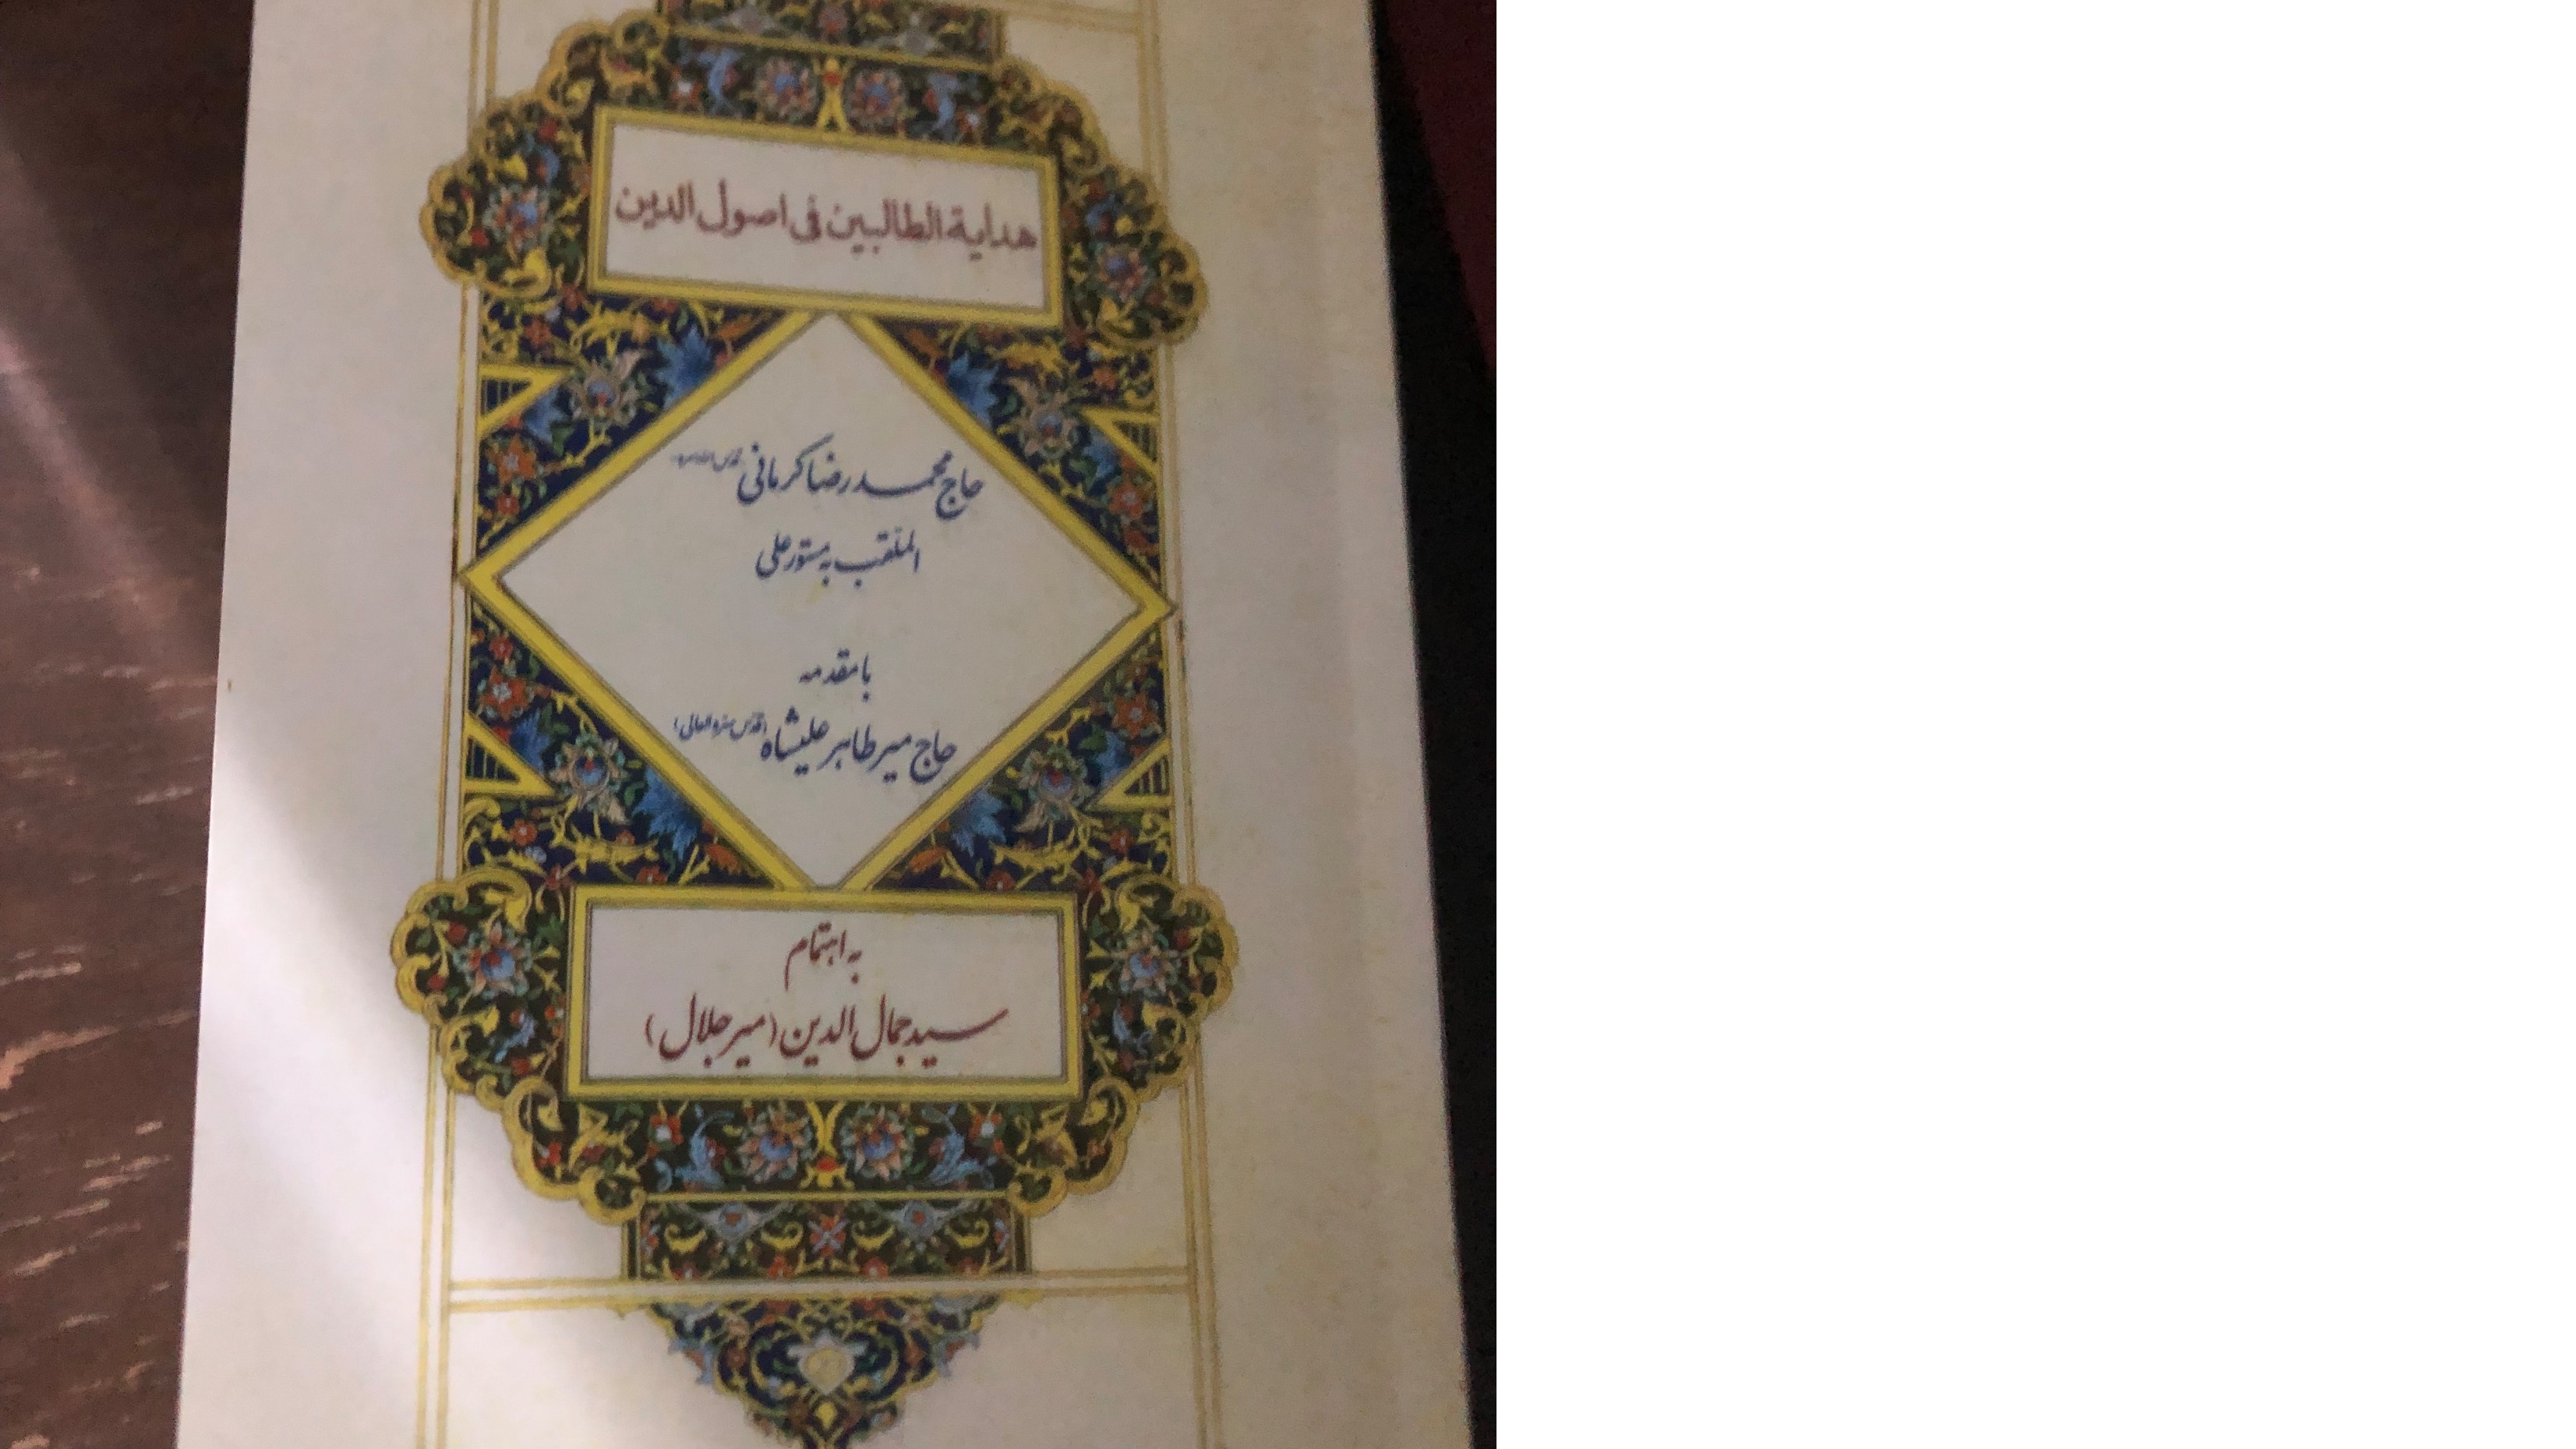 هدایة الطالبین فی اصول الدین
حاج محمد رضا کرمانی
الملقب به مستور علی
با مقدمه
حاج میر طاهر علیشاه (قدس سره العالی)
به اهتمام
سید جمال الدین (میر جلال)